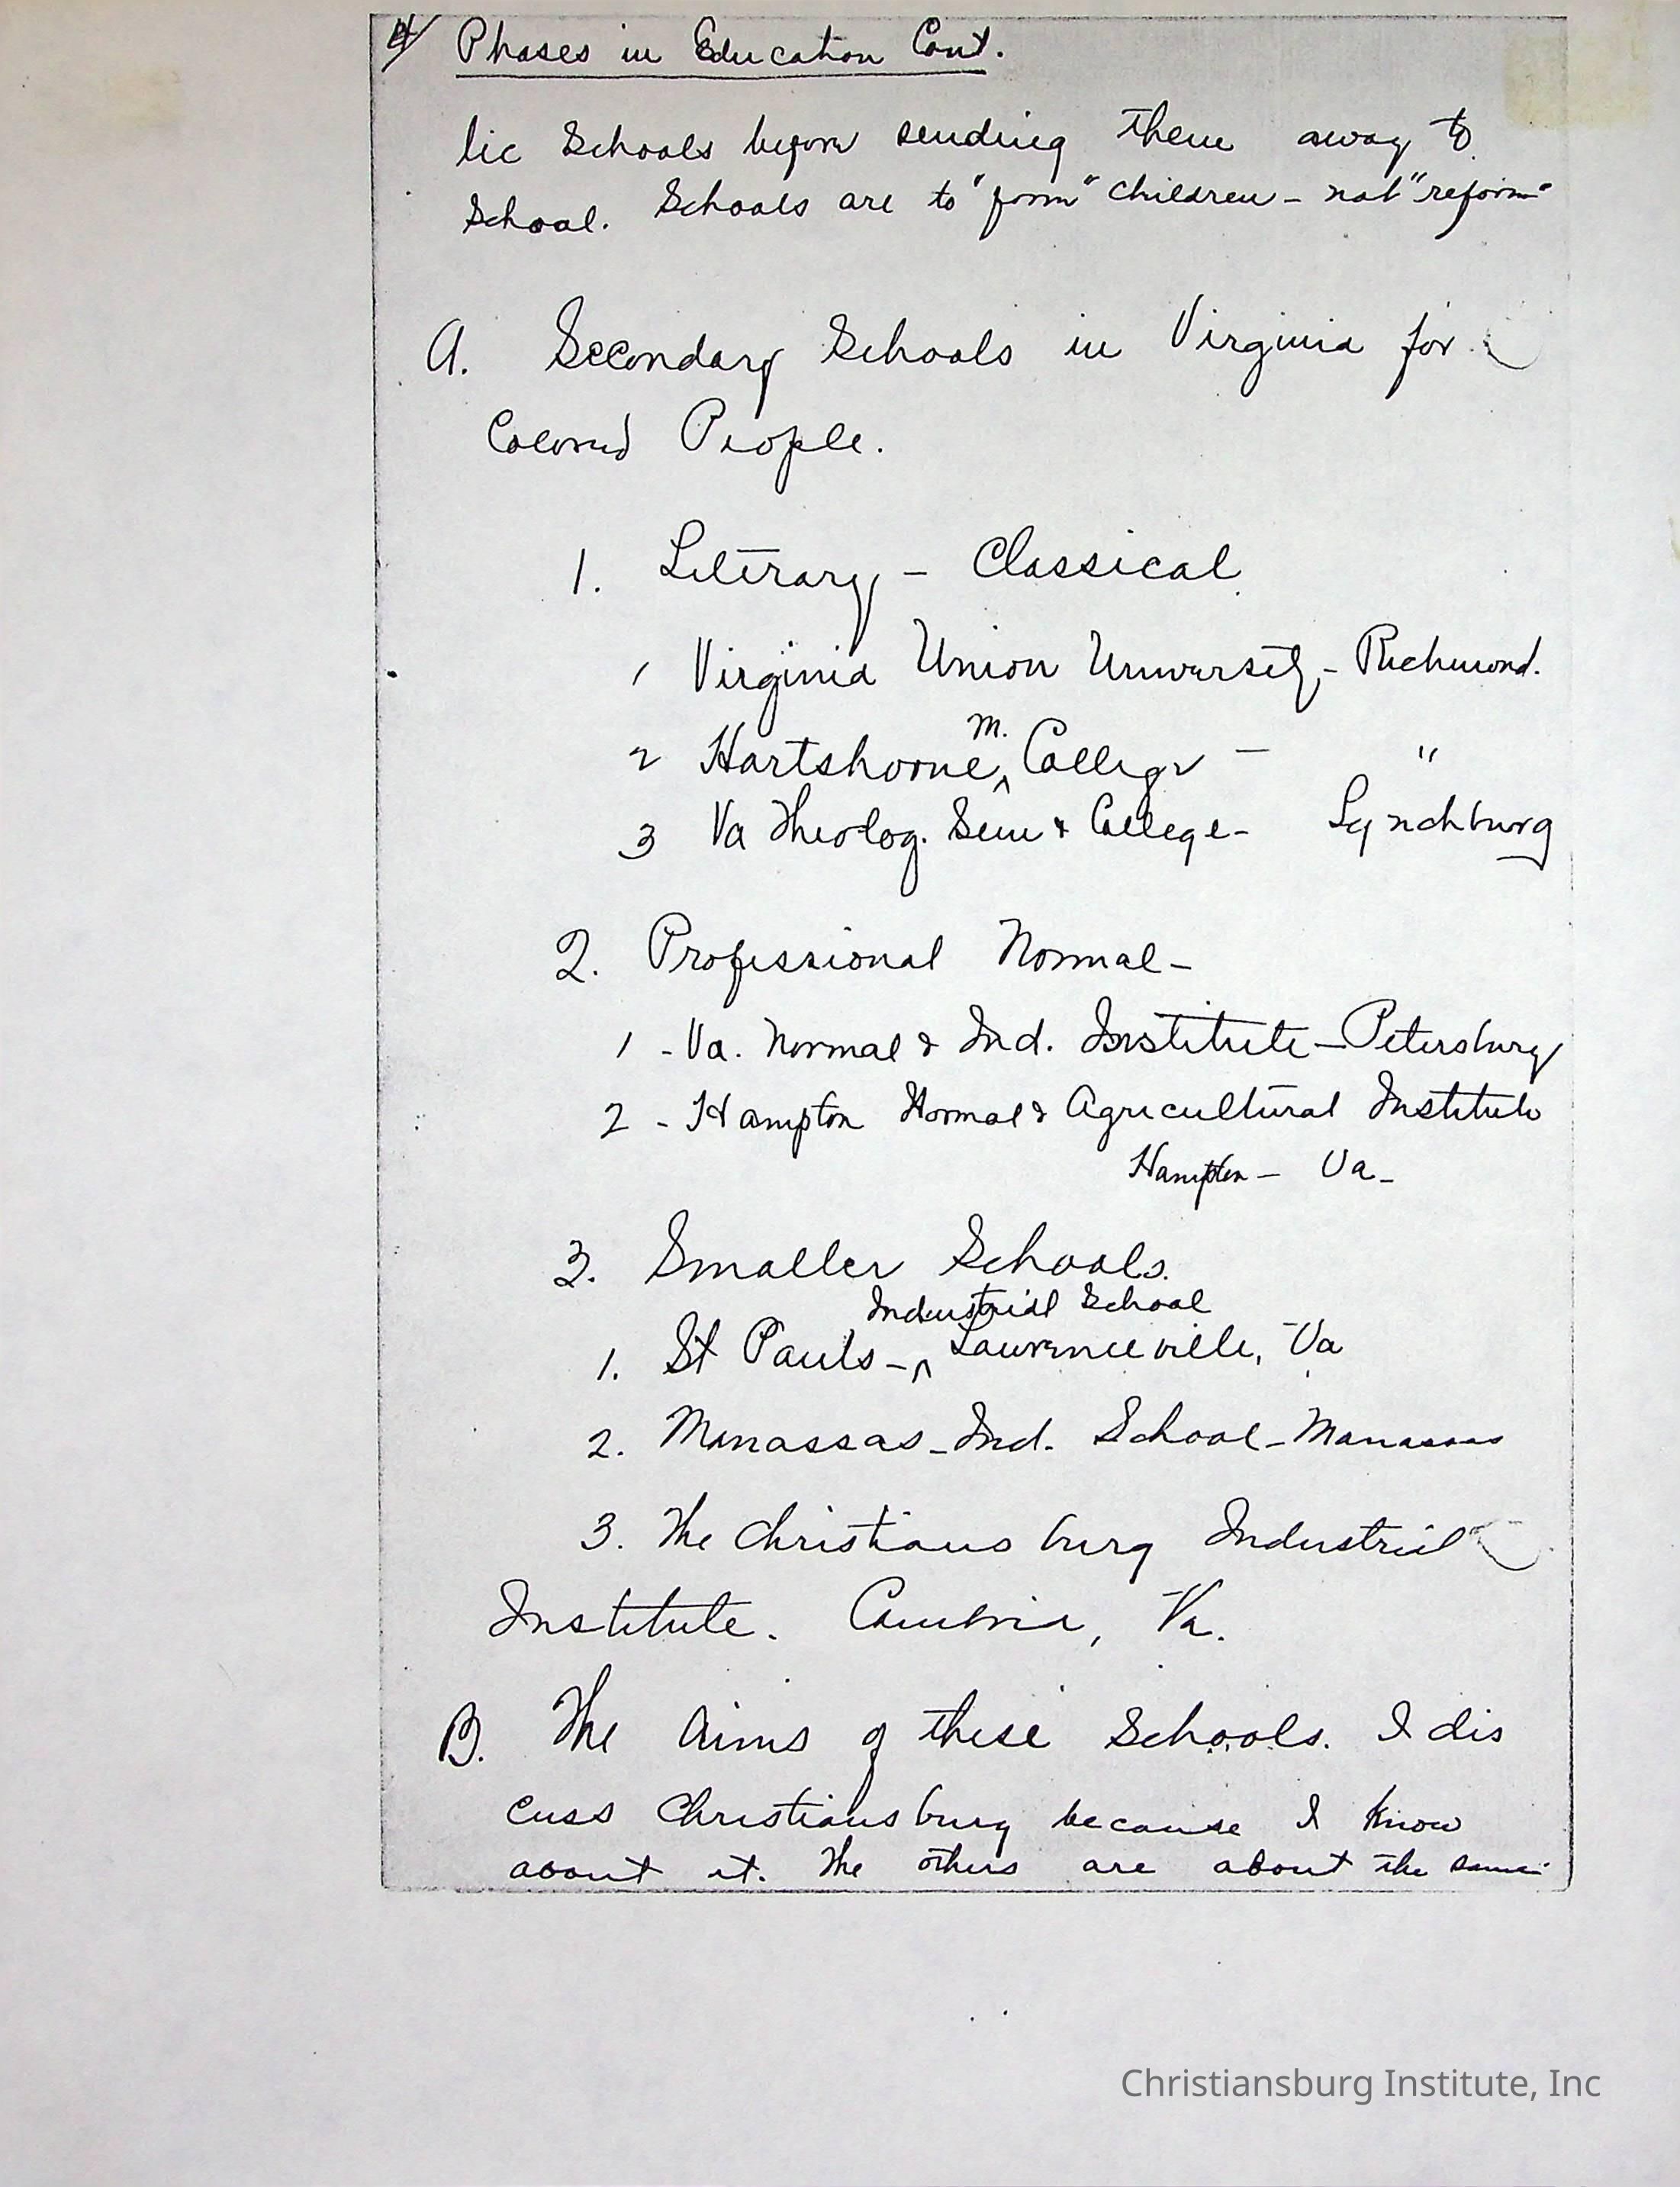 4/ Phases in Education Cont.
lic Schools before sending them away to
School. Schools are to "form" children - not "reform"
A. Secondary Schools in Virginia for
Colored People.
1. Literary - Classical.
1 Virginia Union University - Richmond.
m.
2 Hartshorne ^ College - "
3 Va Theolog. Sem & College - Lynchburg
2. Professional Normal -
1 - Va. Normal & Ind. Institute - Petersburg
2 - Hampton Normal & Agricultural Institute
Hampton - Va -
3. Smaller Schools.
Industrial School
1. St Pauls - ^ Lawrenceville, Va
2. Manassas - Ind. School - Manassas
3. The Christiansburg Industrial
Institute. Cambria, Va.
B. The Aims of these Schools. I dis
cuss Christiansburg because I know
about it. The others are about the same
Christiansburg Institute, Inc